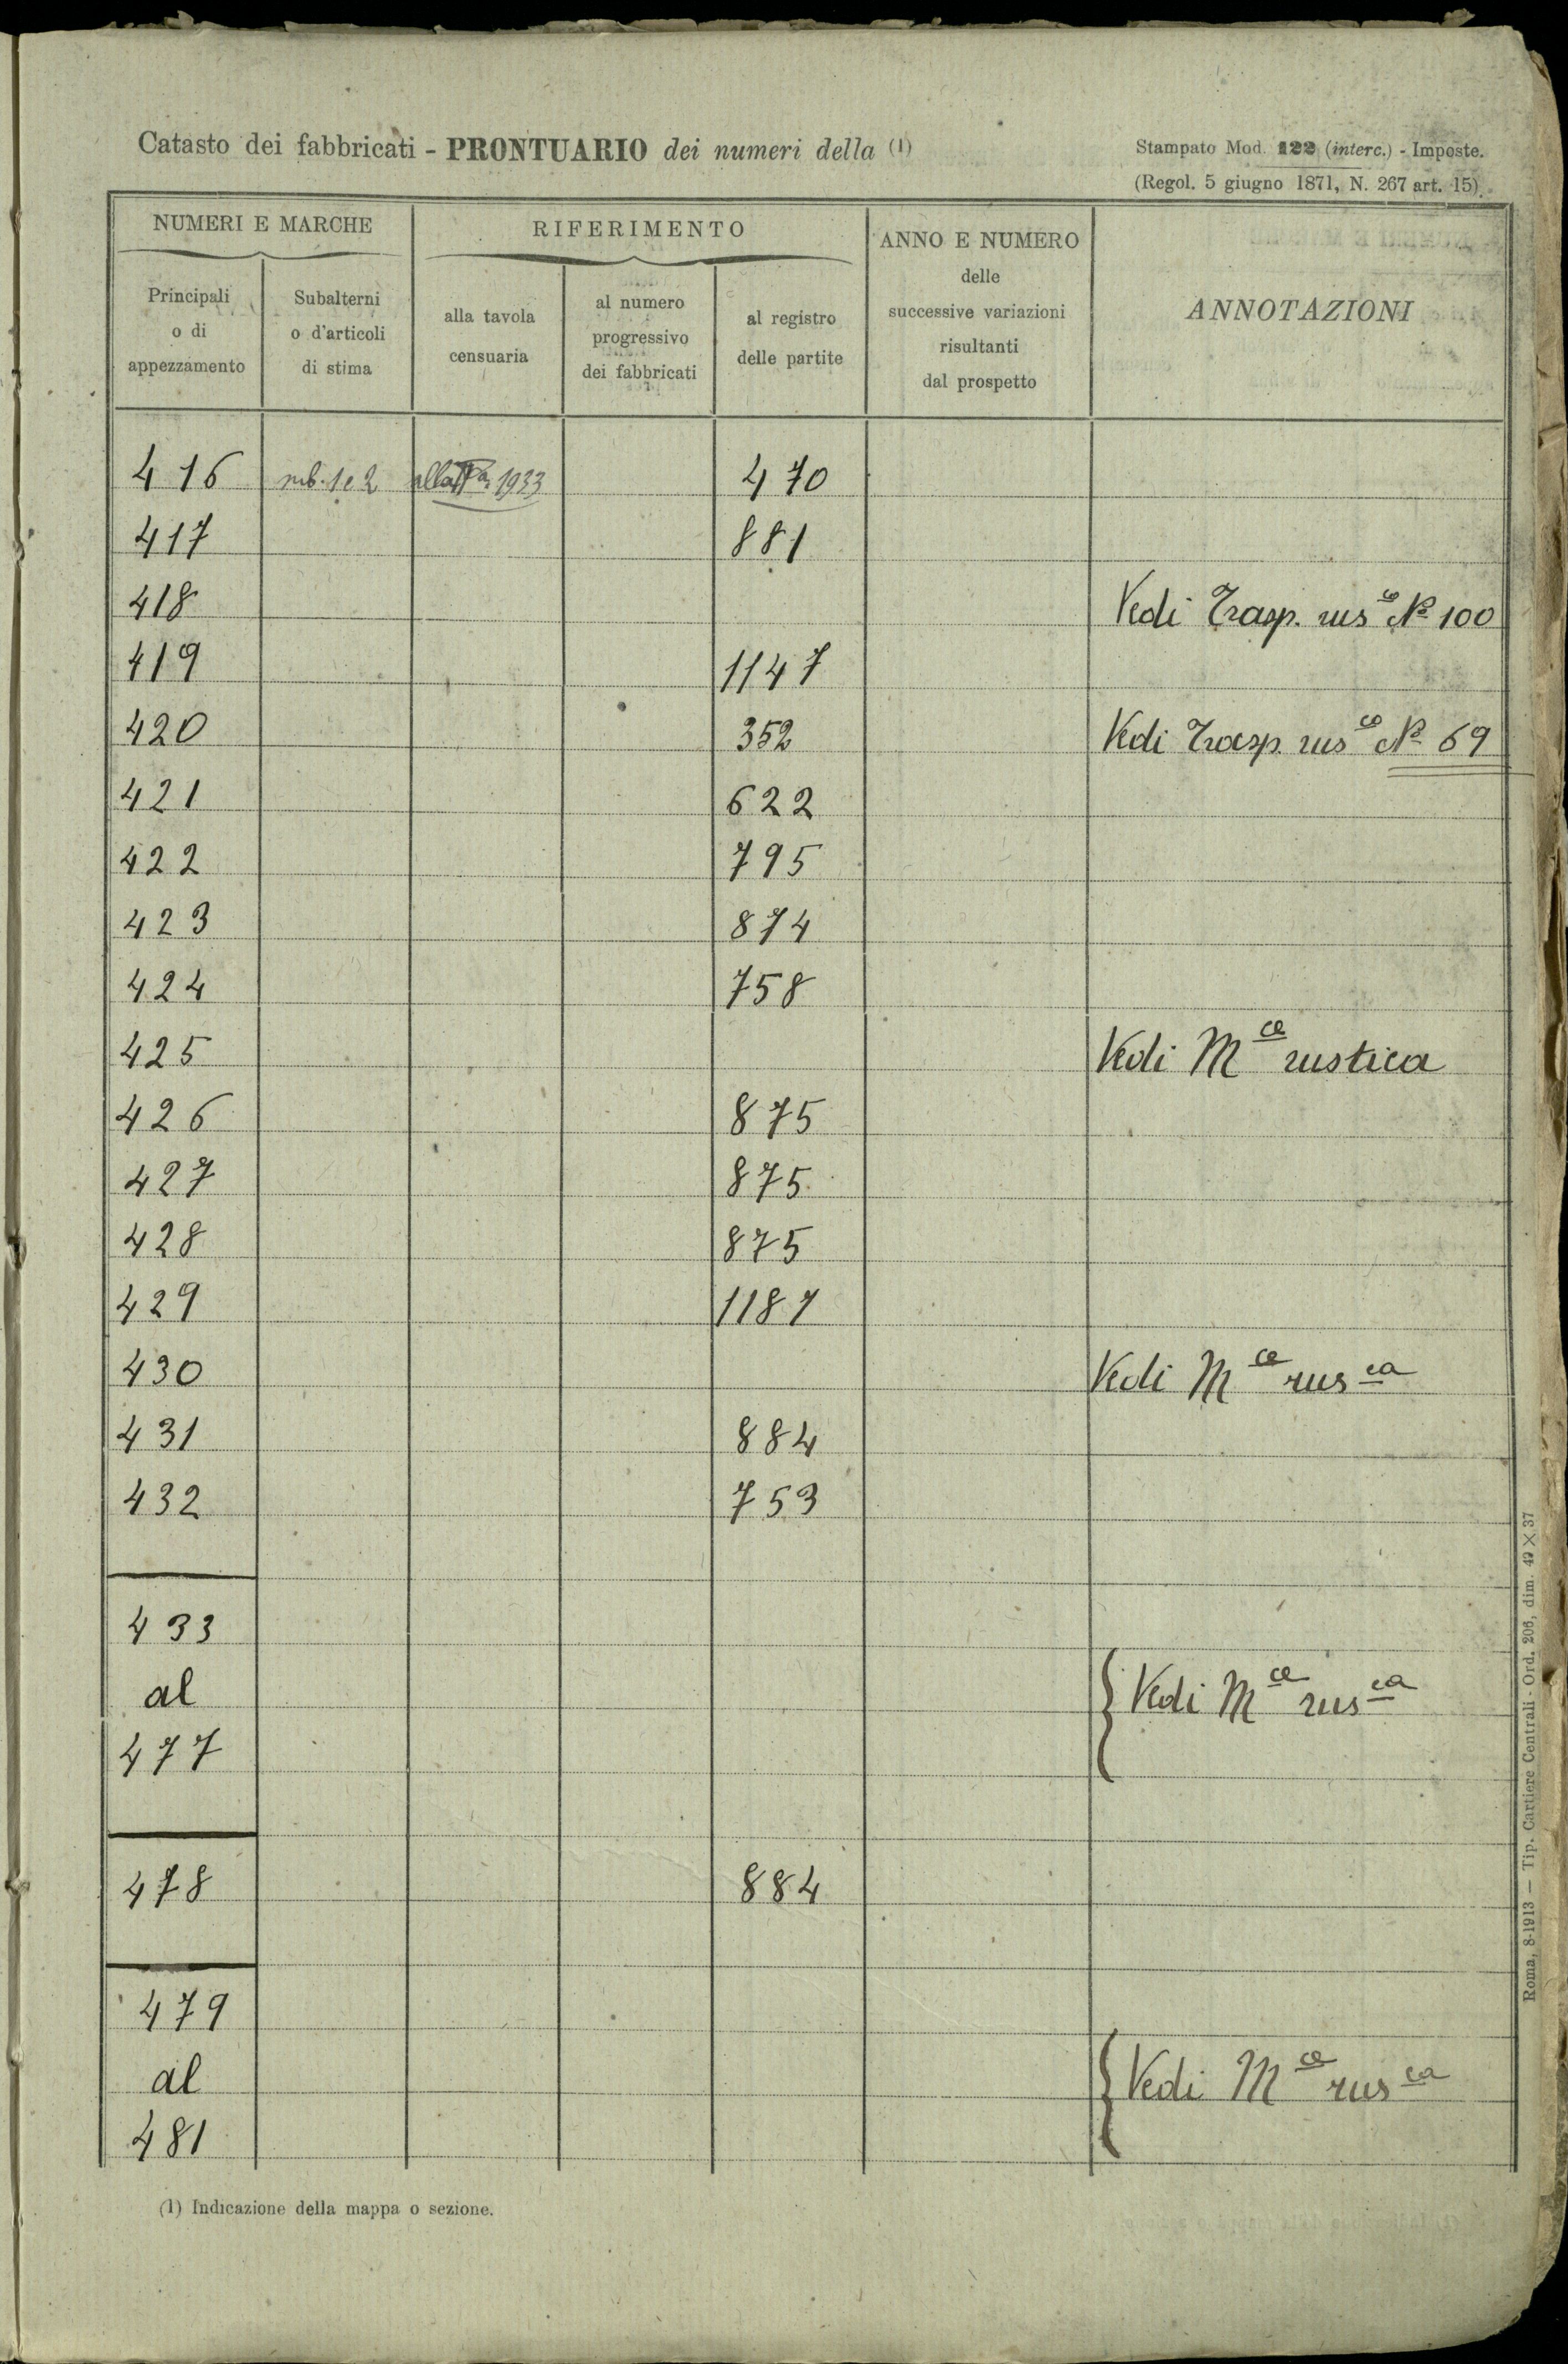 Catasto dei fabbricati - PRONTUARIO dei numeri della (1)
Stampato Mod. 122 (interc.) - Imposte.
(Regol. 5 giugno 1871, N. 267 art. 15).
NUMERI E MARCHE
RIFERIMENTO
ANNO E NUMERO
delle
successive variazioni
risultanti
dal prospetto
ANNOTAZIONI
Principali
o di
appezzamento
Subalterni
o d'articoli
di stima
alla tavola
censuaria
al numero
progressivo
dei fabbricati
al registro
delle partite
416 sub. 1 e 2 alla Pa. 1933 470
417 881
418 Vedi Trasp. rus co No 100
419 1147
420 352 Vedi Trasp. rus co No 69
421 622
422 795
423 874
424 758
425 Vedi M ce rustica
426 875
427 875
428 875
429 1187
430 Vedi M ce rus ca
431 884
432 753
433
al Vedi M ce rus ca
477
478 884
479
al Vedi M ce rus ca
481
(1) Indicazione della mappa o sezione.
Roma, 8-1913 — Tip. Cartiere Centrali - Ord. 206, dim. 49 × 37